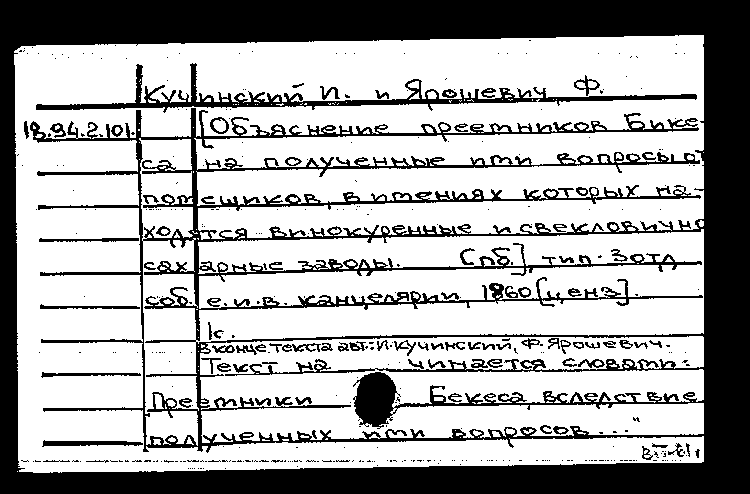 Кучинский, И. и Ярошевич, Ф.
18.94.2.101. [Объяснение преемников Бике-
са на полученные ими вопросы от
помещиков, в имениях которых на-
ходятся винокуренные и свекловично
сахарные заводы. Спб.], тип. 3 отд.
соб. е.и.в. канцелярии, 1860 [ценз].
1с.
В конце текста авт.: И. Кучинский, Ф. Ярошевич.
Текст на чинается словами:
Преемники Бекеса, вследствие
полученных ими вопросов..."